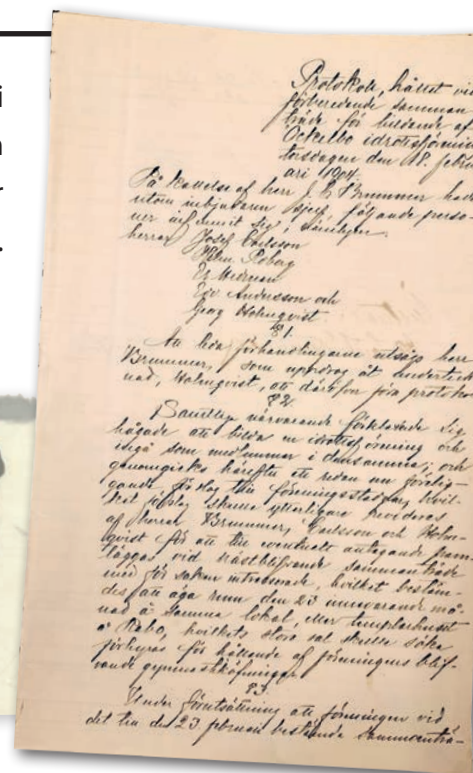 i
n
r
.
Protokoll, hållet vid
förberedande samman
träde för bildande af
Ockelbo idrottsförening
torsdagen den 18. febru
ari 1904.
På kallelse af herr J. E. Brummer hade
utom inbjudaren sjelf följande perso-
ner infunnit sig, nämligen
herrar Josef Carlsson
Roberg
Andersson och
Georg Holmqvist
§1.
Att leda förhandlingarne utsågs herr
Brummer, som uppdrog åt underteck
nad, Holmqvist, att däröfver föra protokoll
§2.
Samtliga närvarande förklarade sig
hågade att bilda en idrottsförening och
ingå som medlemmar i densamma; och
genomgicks härefter ett redan nu förelig-
gande förslag till föreningsstadgar, hvil-
ket förslag skulle ytterligare revideras
af herrar Brummer, Carlsson och Holm-
qvist för att till eventuellt antagande fram
läggas vid nästblifvande sammanträde
med för saken intresserade, hvilket bestäm-
des att äga rum den 23 innevarande må-
nad å samma lokal, eller templarhuset
å Rabo, hvilkets stora sal skulle söka
förhyras för hållande af föreningens blif-
vande gymnastiköfningar
§3.
Under förutsättning att föreningen vid
det till den 23 februari bestämda sammanträ-